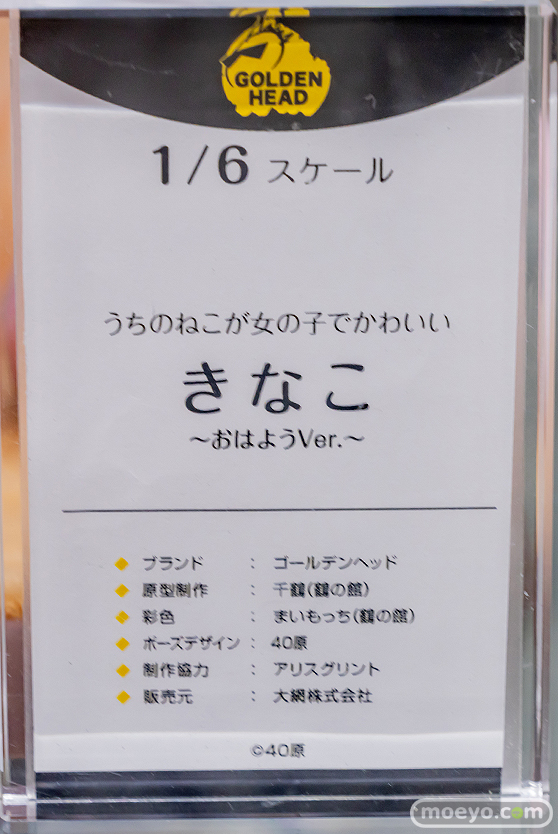 GOLDEN
HEAD
1/6 スケール
うちのねこが女の子でかわいい
きなこ
～おはようVer.～
◆ ブランド : ゴールデンヘッド
◆ 原型制作 : 千鶴(鶴の館)
◆ 彩色 : まいもっち(鶴の館)
◆ ポーズデザイン : 40原
◆ 制作協力 : アリスグリント
◆ 販売元 : 大網株式会社
©40原
moeyo.com